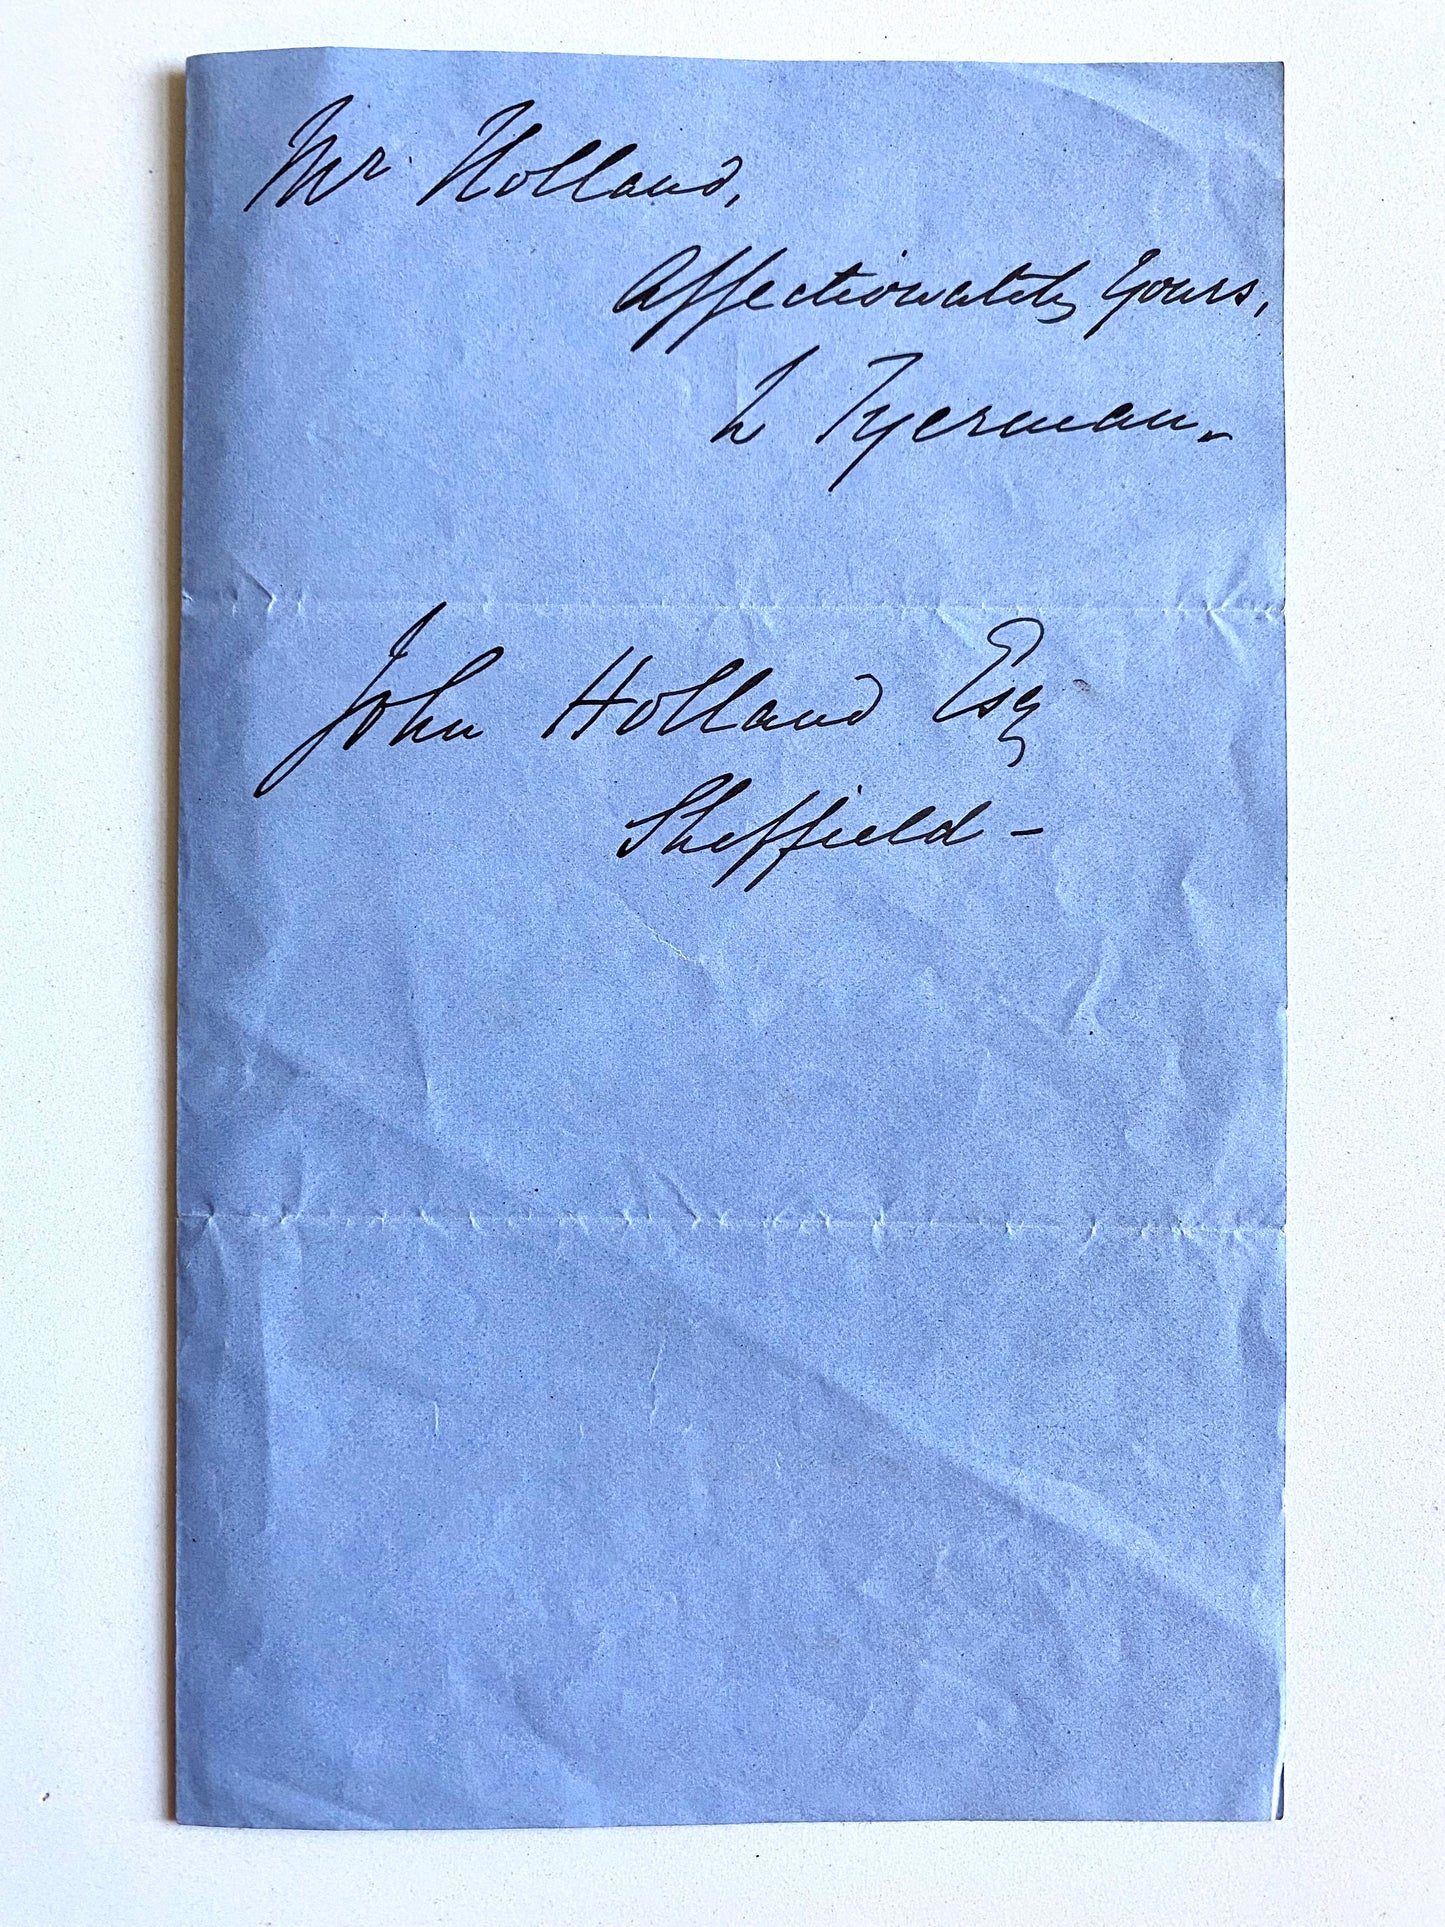 Mr Holland,
Affectionately Yours,
L Tyerman.
John Holland Esq
Sheffield -